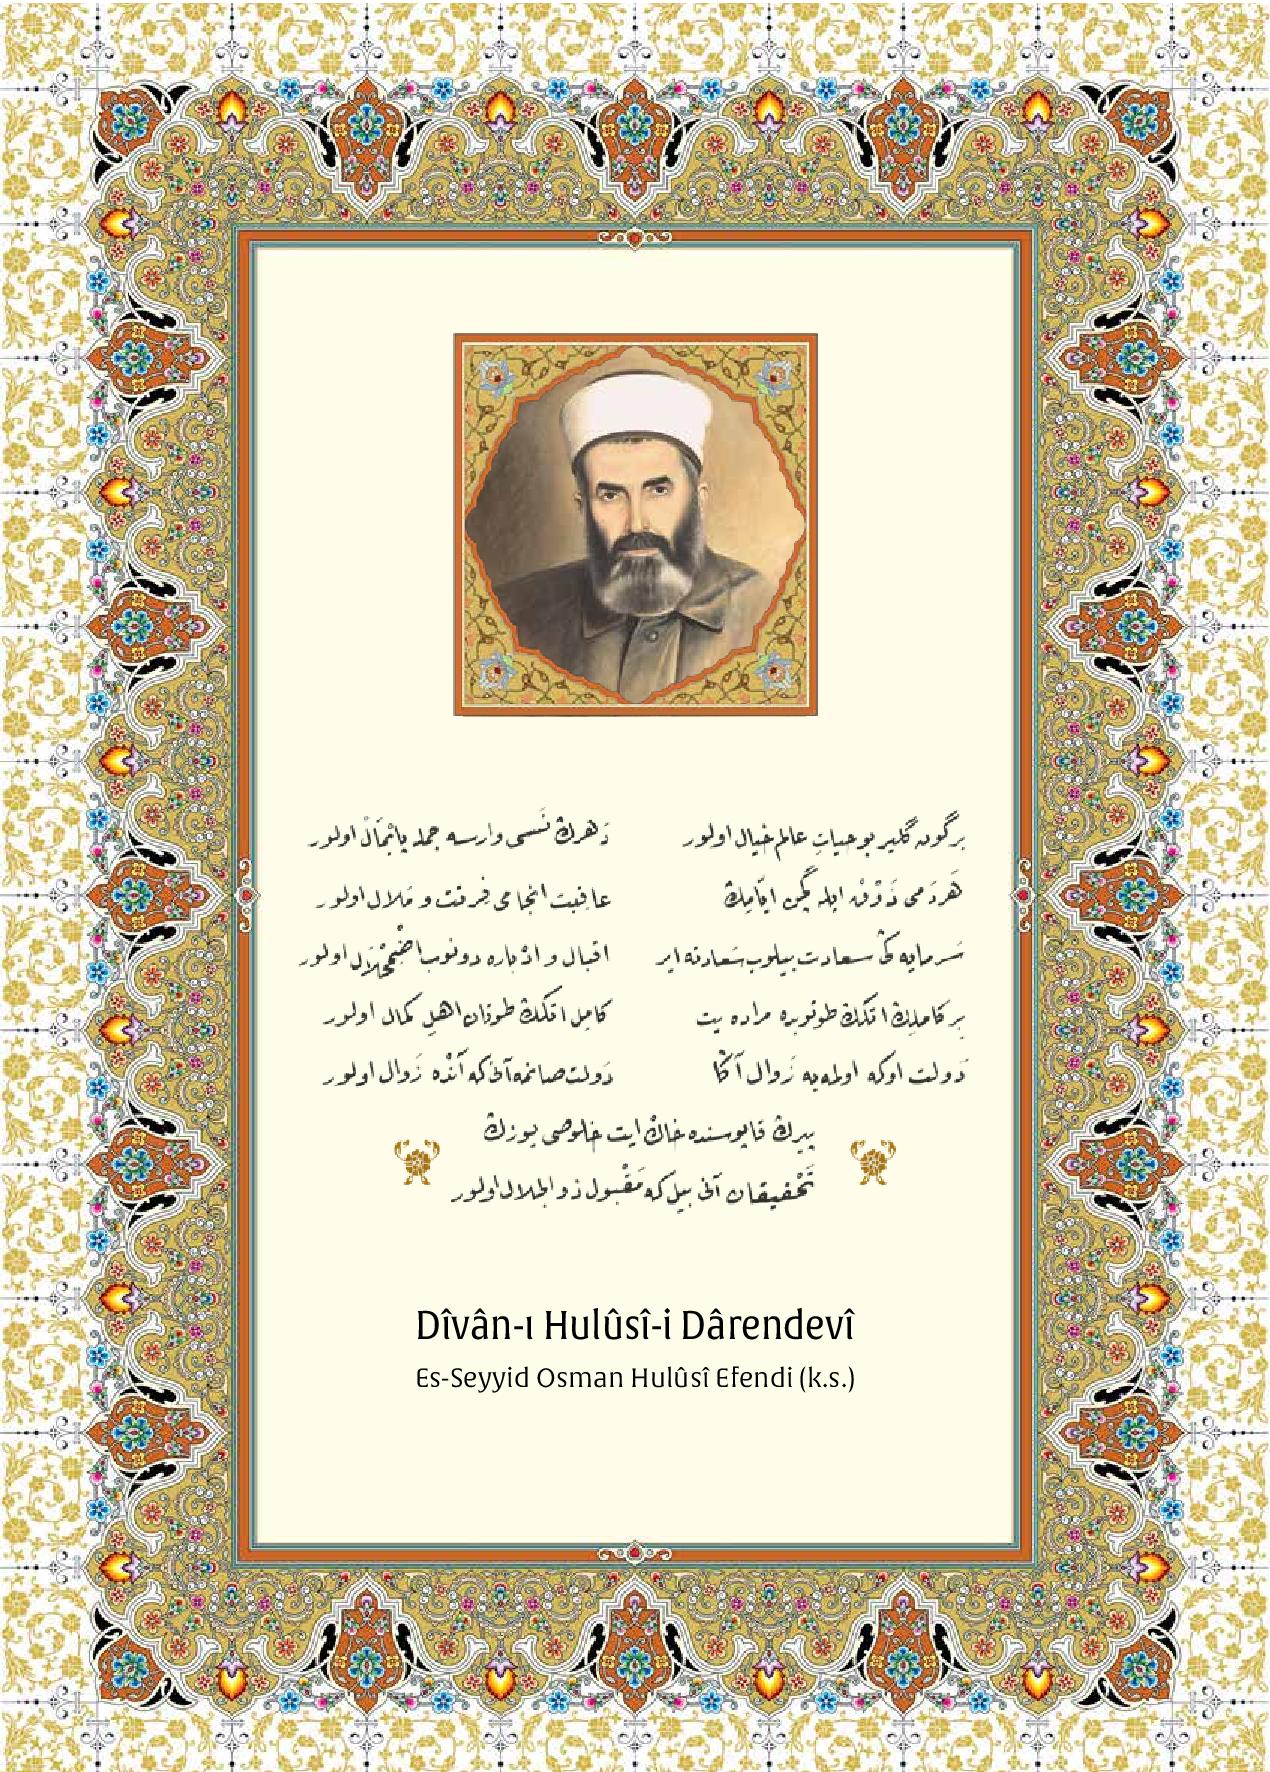 برگون گلیر بو حیاتِ عالم خیال اولور دَهرڭ نَسی وارسه جمله پایْمَالْ اولور
هَردَمی ذَوْقْ ایله گچن ایّامِڭ عاقبت انجامی فِرقت و مَلال اولور
سَرمایه‌ٔ سعادت بیلوب سَعادته ایر اقبال و ادْباره دونوب اضْمِحْلَال اولور
بر کامِلِڭ اتگڭ طوتوبده مراده یت کامِل اتگڭ طوتان اهلِ کمال اولور
دَولت اوکه اولمه‌یه زَوال آڭا دَولت صانمه آنی که آنْده زَوال اولور
پیرڭ قاپوسنده خاڭ ایت خلوصی یوزڭ
تَحْقیقان آنی بیل که مَقْبول ذو الجلال اولور
Dîvân-ı Hulûsî-i Dârendevî
Es-Seyyid Osman Hulûsî Efendi (k.s.)